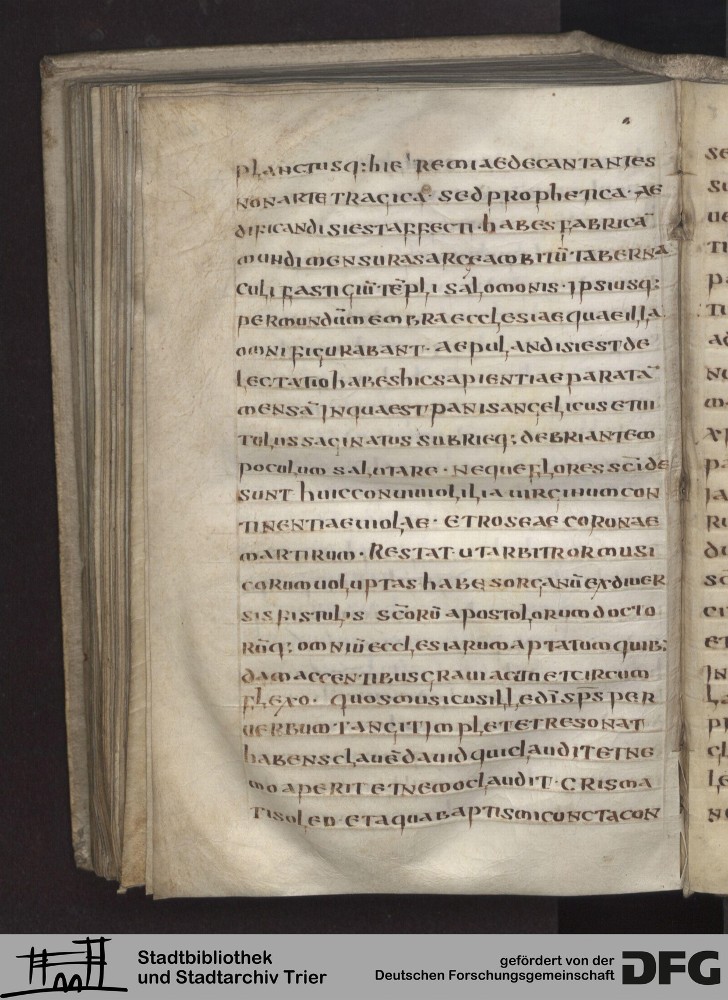 planctusq: hieremiae decantantes
non arte tragica · sed prophetica · ae
dificandi si est affecti · habes fabricā
mundi mensuras arcae ambitū taberna
culi fastigiū tēpli salomonis · ipsiusq:
per mundū membra ecclesiae quae illa
omni figurabant · aepulandi si est de
lectatio habes hic sapientiae paratā
mensā in qua est panis angelicus et ui
tulus saginatus subrieq; debriantem
poculum salutare · neque flores sc̄i de
sunt huic conuiuio lilia uirginum con
tinentiae uiolae · et roseae coronae
martirum · Restat ut arbitror musi
corum uoluptas habes organū ex diuer
sis fistulis sc̄orū apostolorum docto
rūq; omniū ecclesiarum aptatum quib;
dam accentibus graui acuto et circum
flexo · quos musicus ille dī sp̄s per
uerbum tangit implet et resonat
habens clauē dauid qui claudit et ne
mo aperit et nemo claudit · crisma
tis oleo et aqua baptismi cuncta con
se
su
ue
ti
p
ti
ad
nu
m
pa
ia
ru
du
sc̄
cu
et
in
la
pr
cl
le
n
Stadtbibliothek
und Stadtarchiv Trier
gefördert von der
Deutschen Forschungsgemeinschaft
DFG